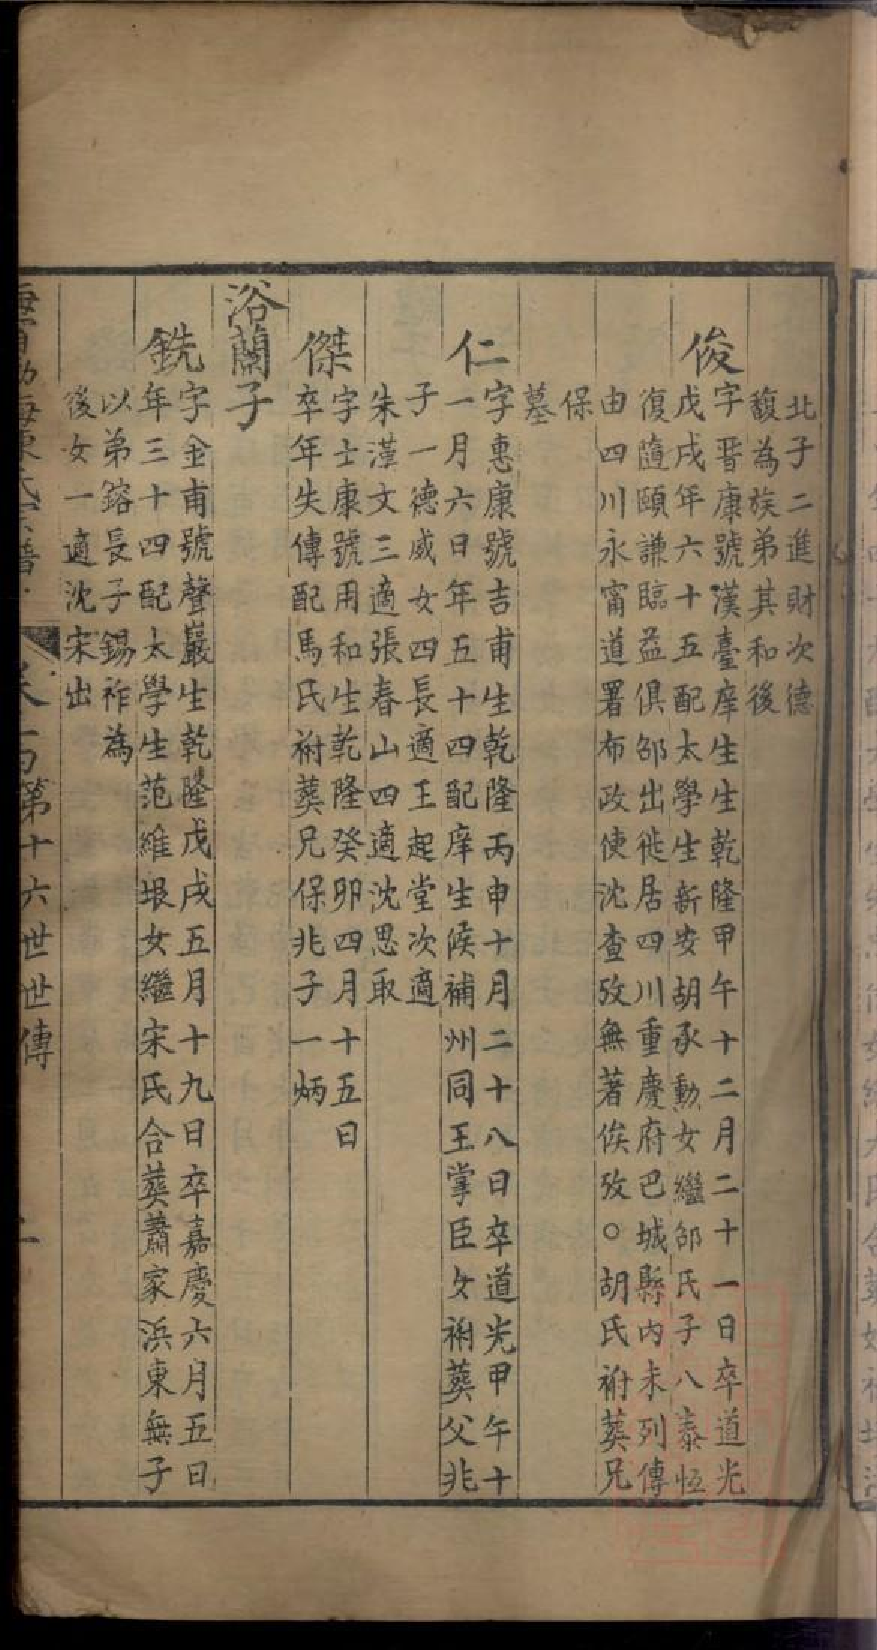 北子二進財次德
馥為族弟其和後
俊
字晋康號漢臺庠生生乾隆甲午十二月二十一日卒道光
戊戌年六十五配太學生新安胡承勳女繼邹氏子八泰恒
復隨頤謙臨益俱邹出徙居四川重慶府巴城縣內未列傳
由四川永甯道署布政使沈查攷無著俟攷○胡氏祔葬兄
保
墓
仁
字惠康號吉甫生乾隆丙申十月二十八日卒道光甲午十
一月六日年五十四配庠生候補州同王掌臣女祔葬父兆
子一德威女四長適王起堂次適
朱漢文三適張春山四適沈思取
傑
字士康號用和生乾隆癸卯四月十五日
卒年失傳配馬氏祔葬兄保兆子一炳
浴蘭子
銑
字金甫號聲巖生乾隆戊戌五月十九日卒嘉慶六月五日
年三十四配太學生范維垠女繼宋氏合葬蕭家浜東無子
以弟鎔長子錫祚為
後女一適沈宋出
第十六世世傳